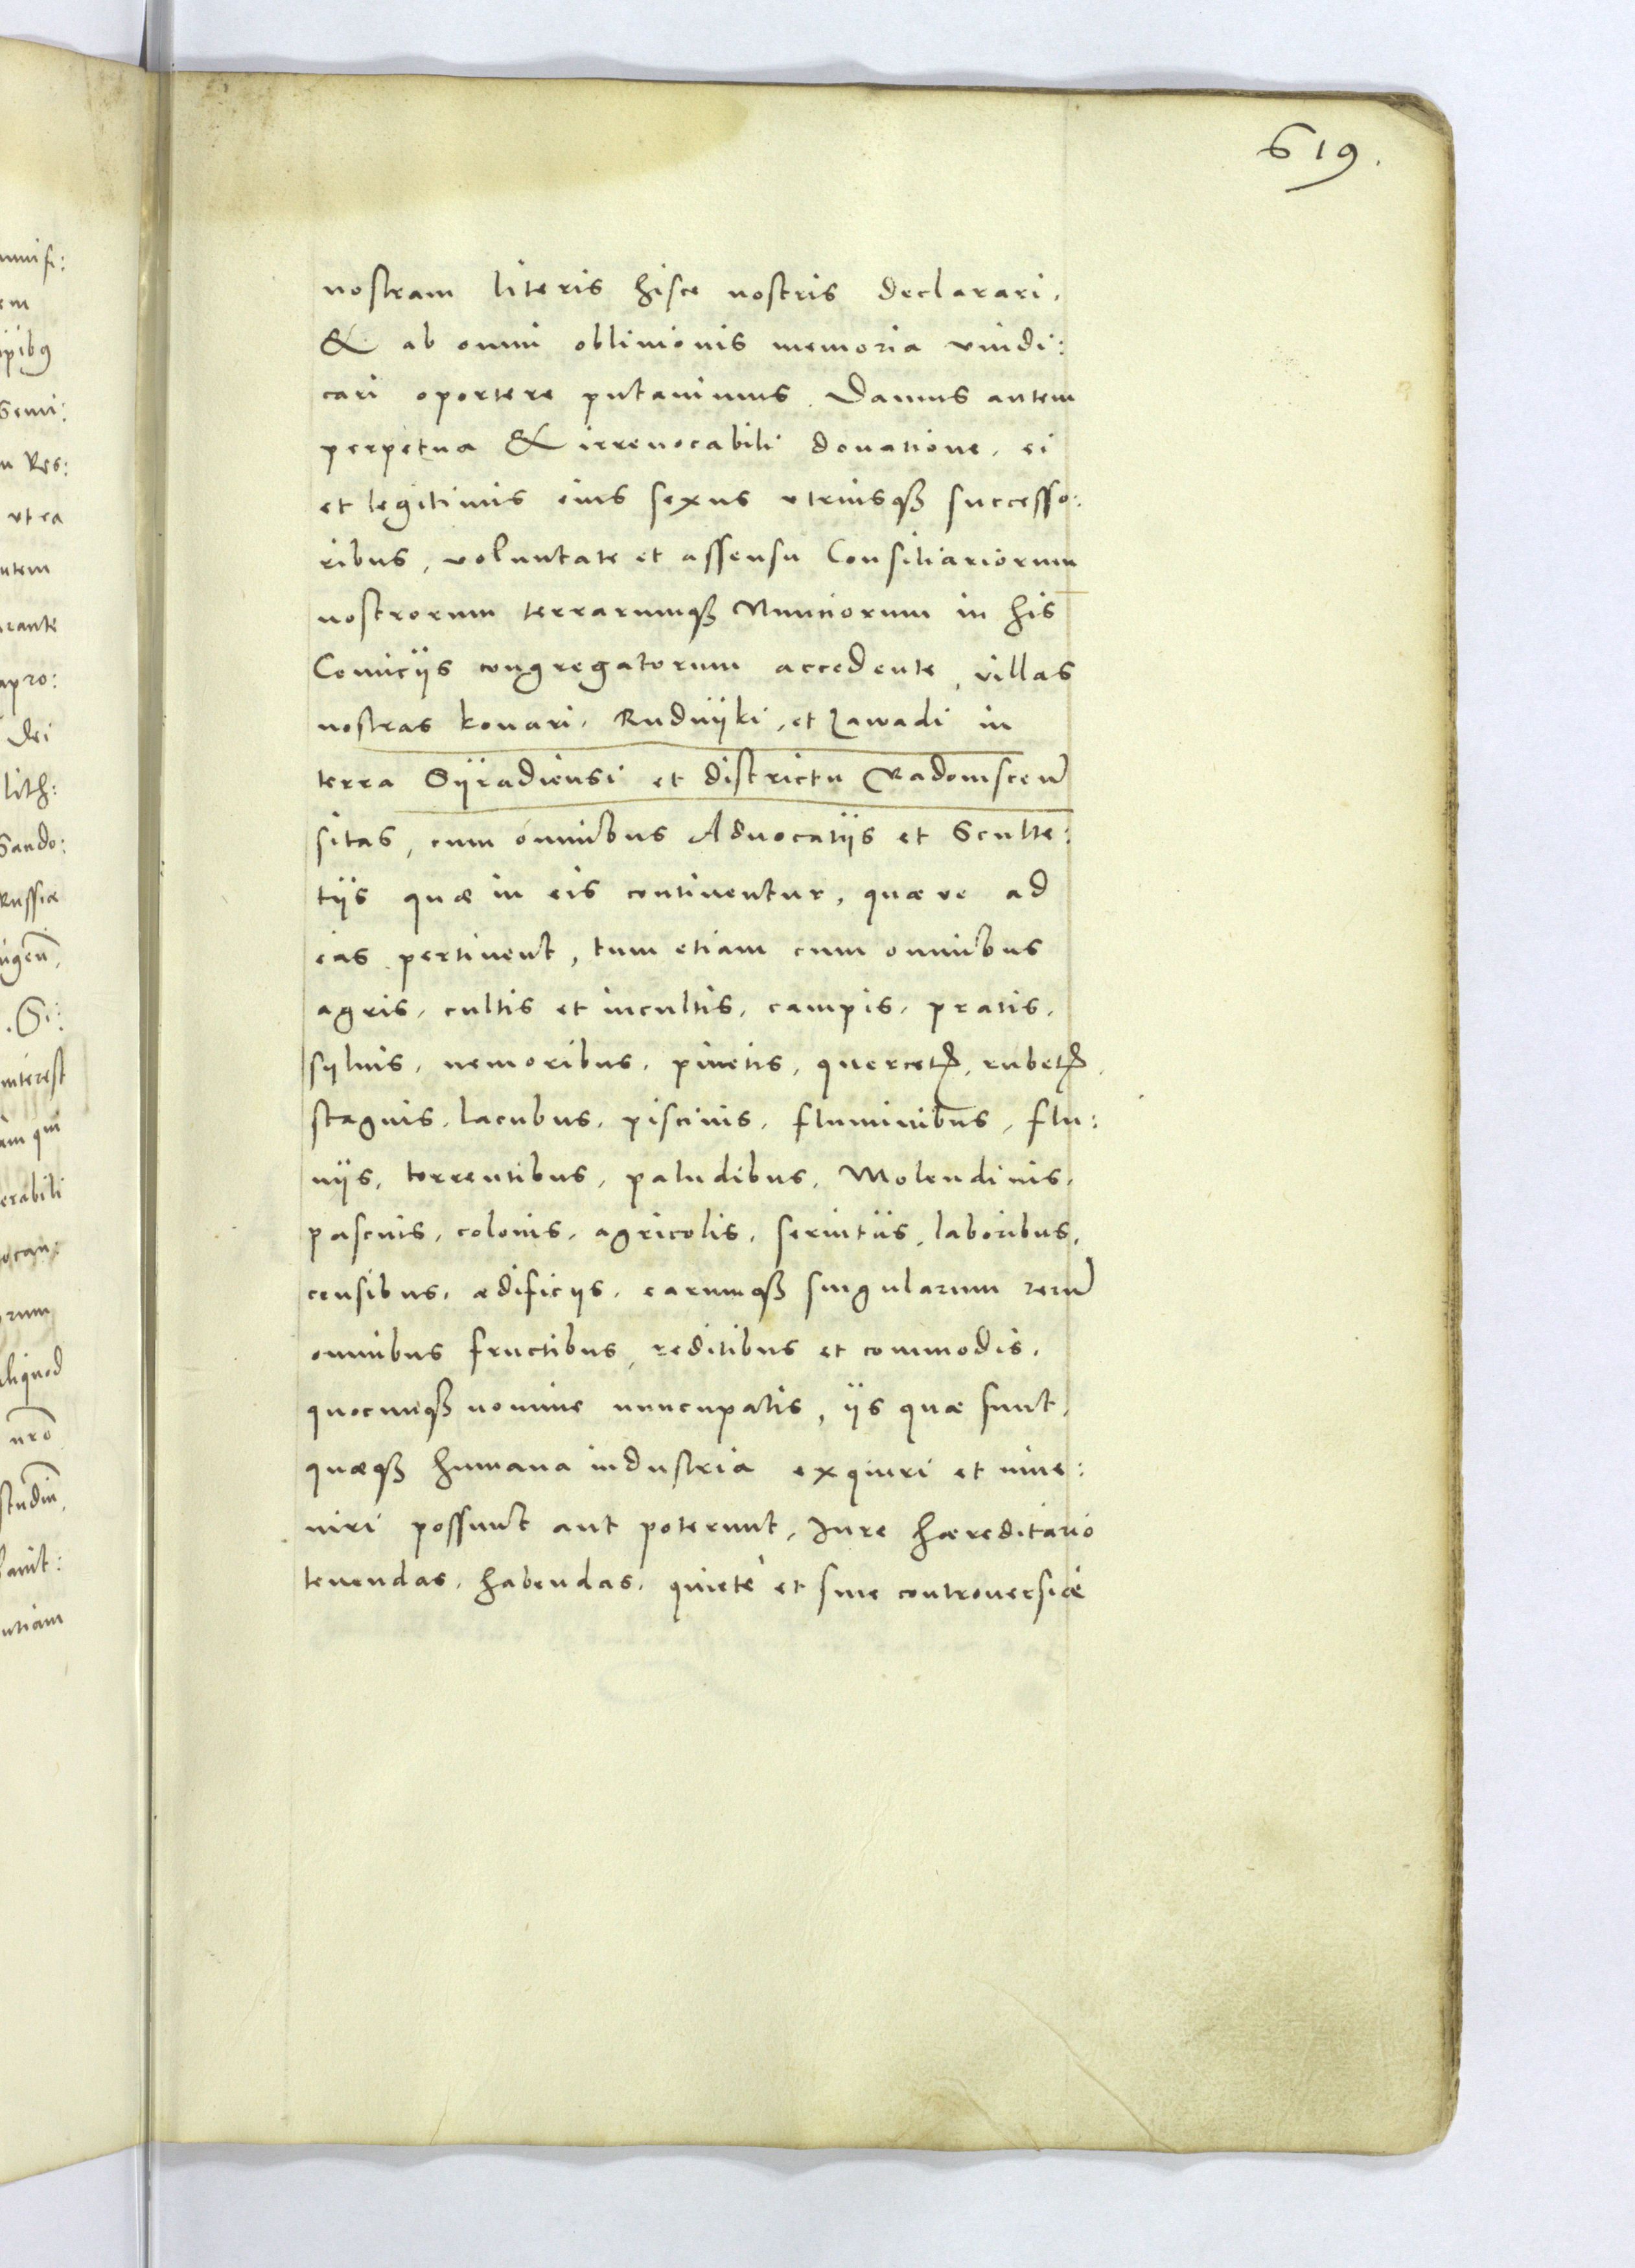 619.
nostram literis hisce nostris declarari,
& ab omni obliuionis memoria vindi:
cari oportere putauimus. Damus autem
perpetua & irreuocabili donatione, ei
et legitimis eius sexus vtriusqꝫ successo:
ribus, voluntate et assensu Consiliariorum
nostrorum terrarumqꝫ Nunciorum in his
Comicijs congregatorum accedente, villas
nostras konari, Rudnijki, et Zawadi in
terra Sÿradiensi et districtu Radomscen̄
sitas, cum omnibus Aduocatijs et Sculte:
tijs quæ in eis continentur, quæ ve ad
eas pertinent, tum etiam cum omnibus
agris, cultis et incultis, campis, pratis,
syluis, nemoribus, pinetis, quercetꝭ, rubetꝭ,
stagnis, lacubus, piscinis, fluminibus, flu:
uijs, torrentibus, paludibus, Molendinis,
pascuis, colonis, agricolis, seruitiis, laboribus,
censibus, ædificijs, earumqꝫ singularum rerū
omnibus fructibus, reditibus et commodis,
quocunqꝫ nomine nuncupatis, ijs quæ sunt,
quæqꝫ humana industria exquiri et inue:
niri possunt aut poterunt, Jure hæreditario
tenendas, habendas, quietè et sine controuersiæ